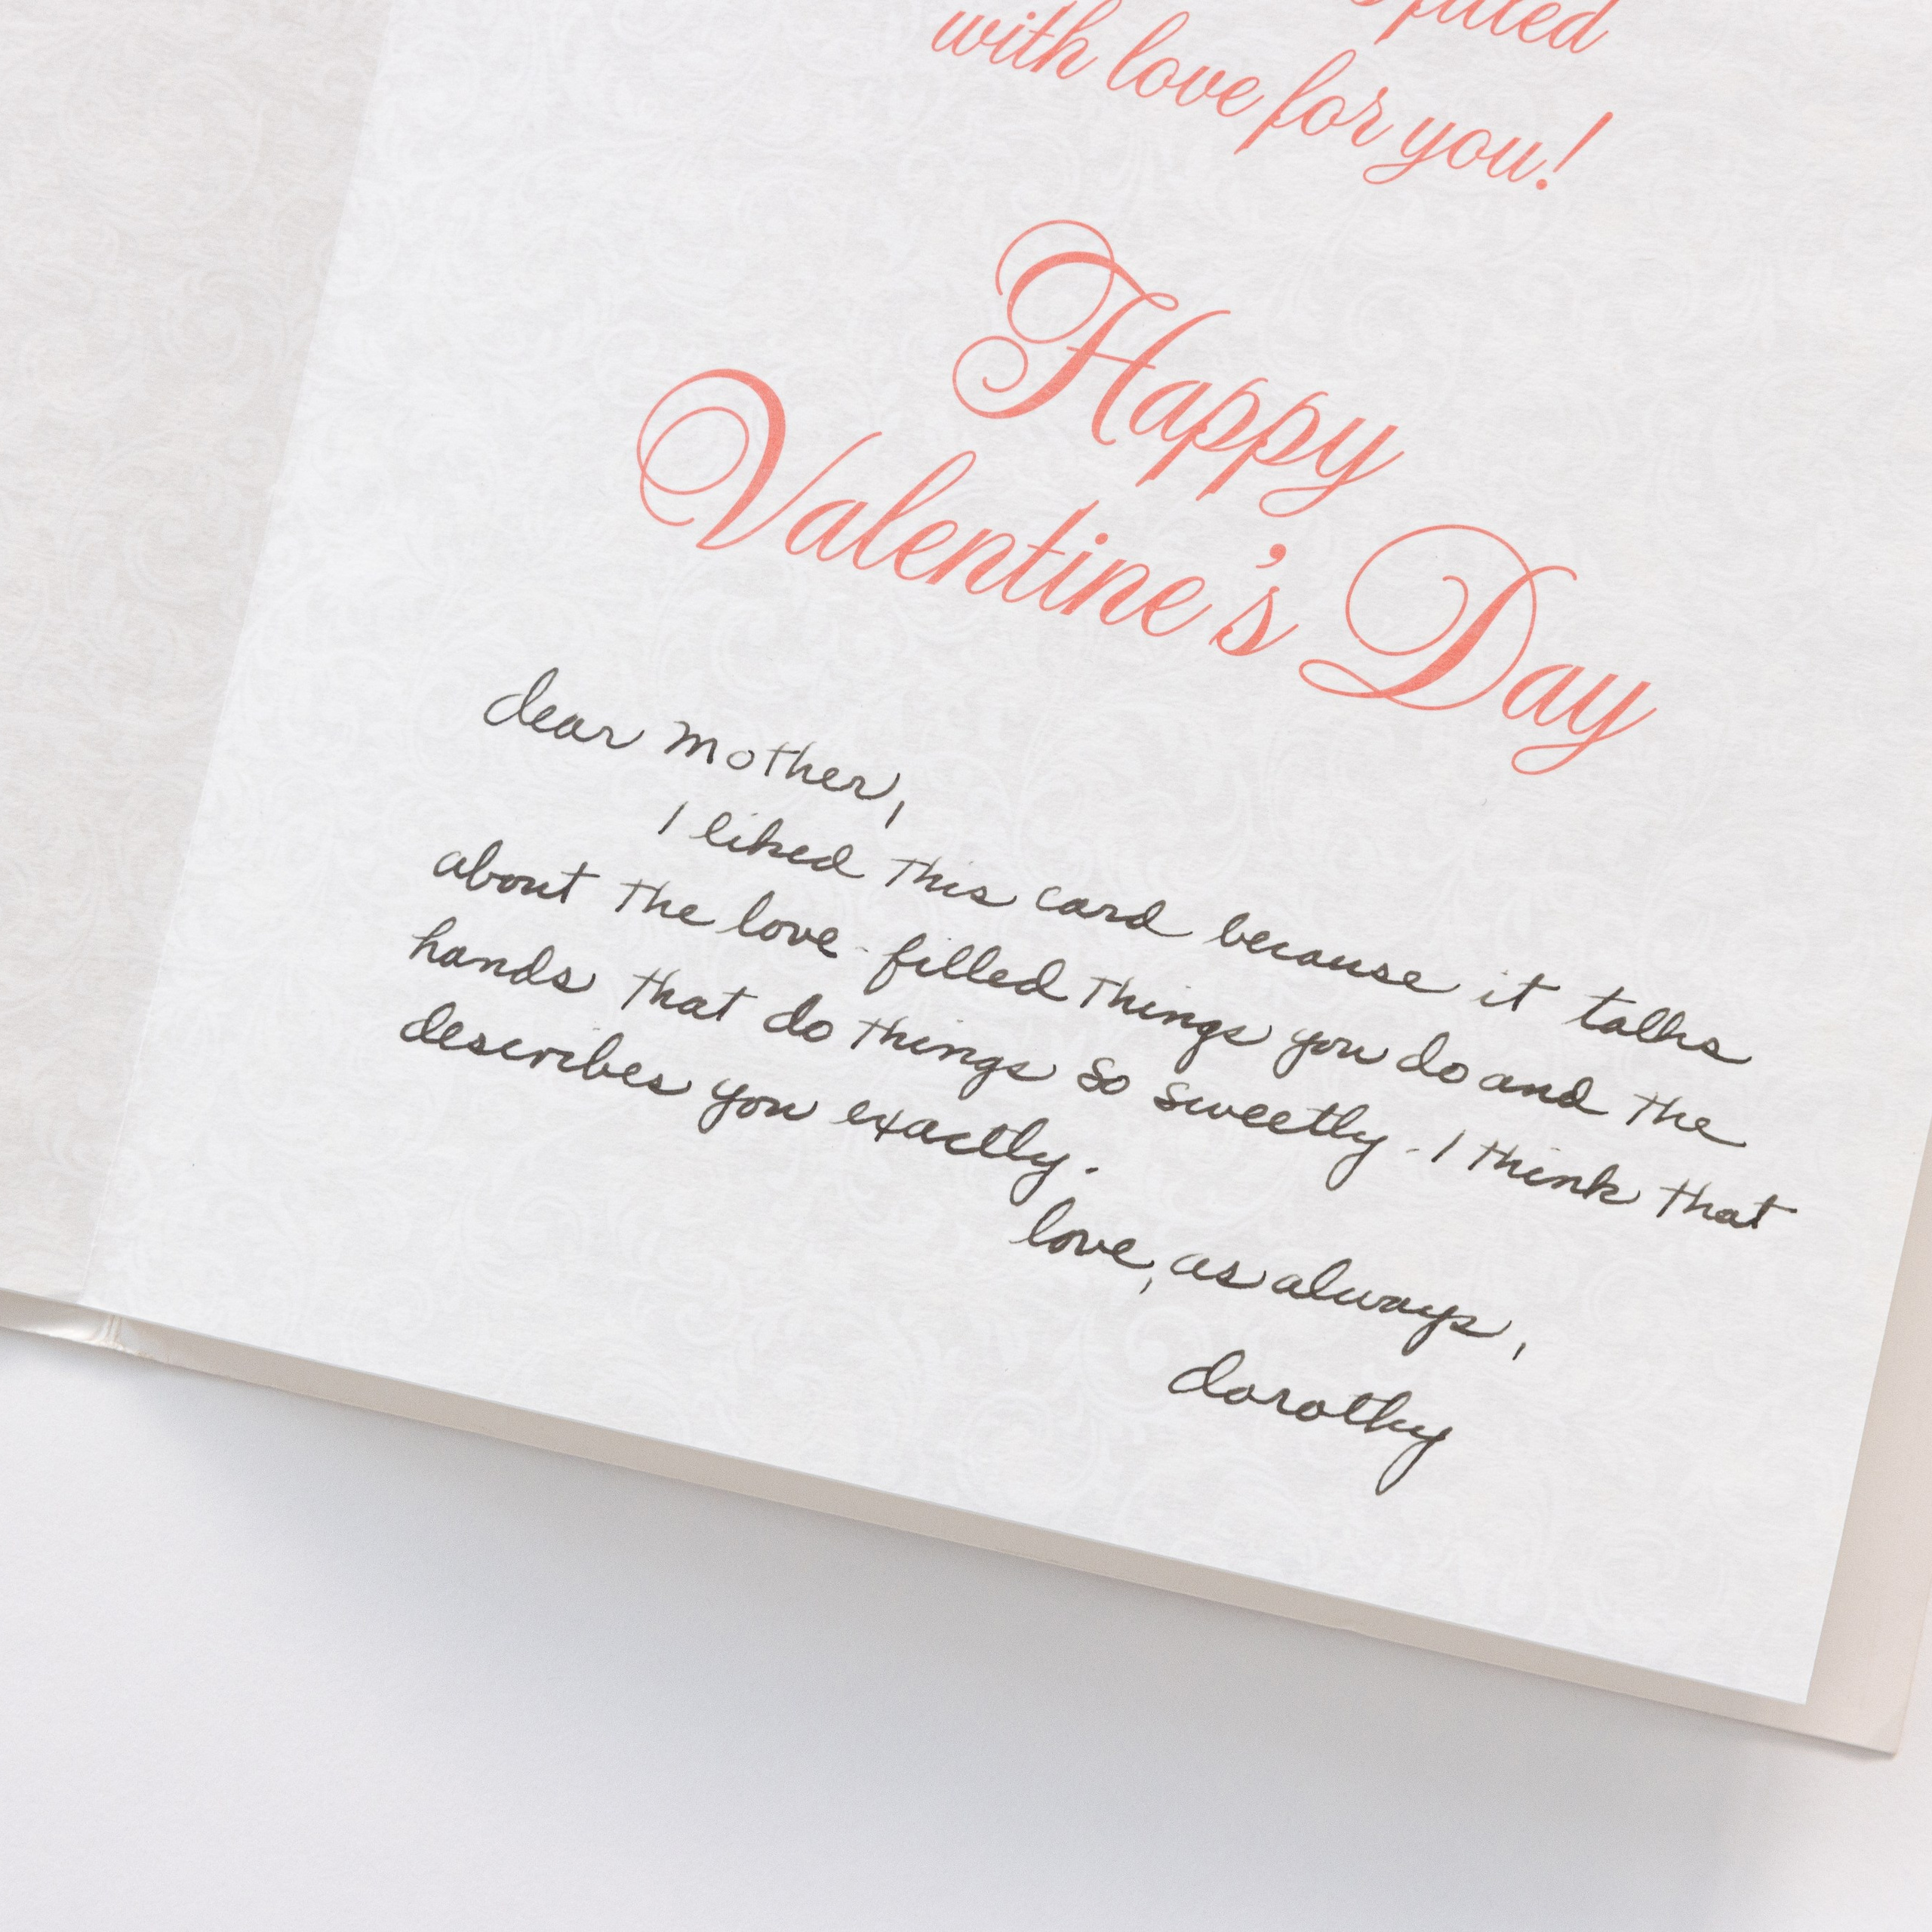 filled
with love for you!
Happy
Valentine's Day
dear Mother,
I liked this card because it talks
about the love-filled things you do and the
hands that do things so sweetly. I think that
describes you exactly.
love, as always,
dorothy